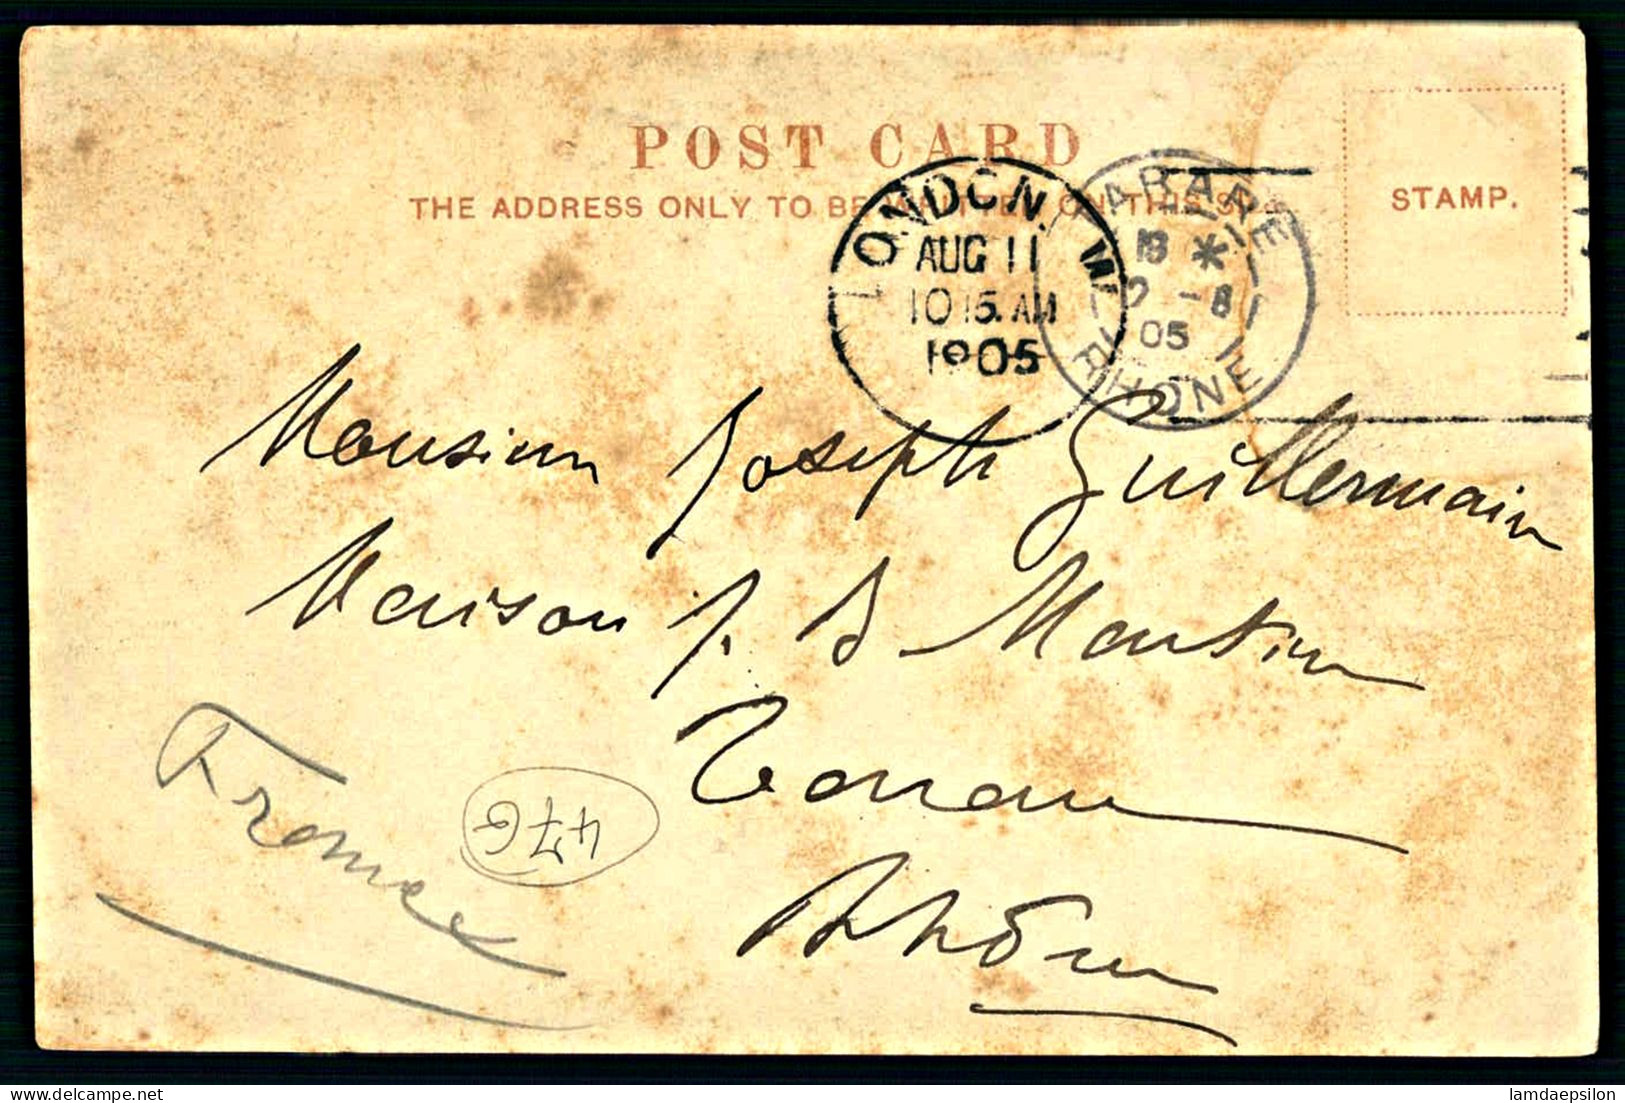 POST CARD
THE ADDRESS ONLY TO BE WRITTEN ON THIS SIDE
STAMP.
LONDON. W
AUG 11
10 15 AM
1905
TARARE
18 *
-8
05
RHONE
Monsieur Joseph Guillermain
Maison J. B Martin
Tarare
Rhône
France
476
lamdaepsilon